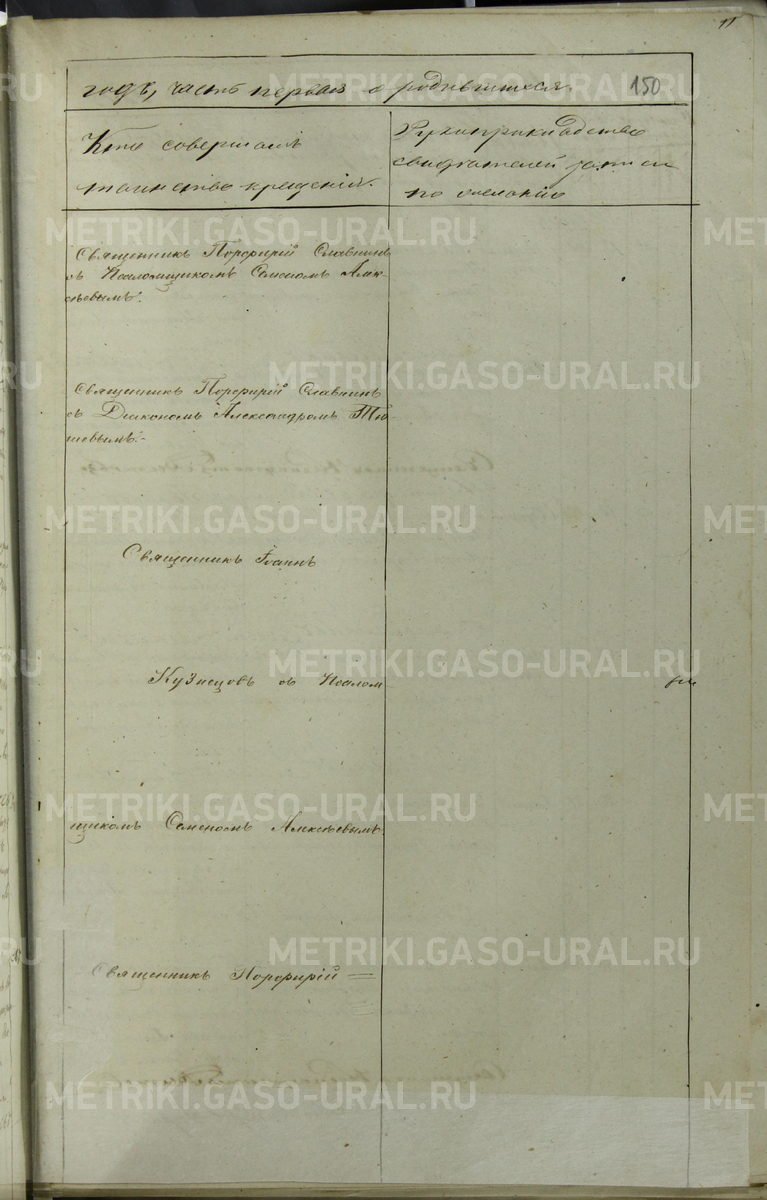 11
годъ, часть первая о родившихся. 150
Кто совершалъ
таинство крещенія.
Рукоприкладство
свидѣтелей записи
по желанію
Священникъ Порфирій Славнинъ
съ Псаломщикомъ Семеномъ Алек-
сѣевымъ.
Священникъ Порфирій Славнинъ
съ Діакономъ Александромъ
Священникъ Іоаннъ
Кузнецовъ съ Псалом
щикомъ Семеномъ Алексѣевымъ.
Священникъ Порфирій =
METRIKI.GASO-URAL.RU